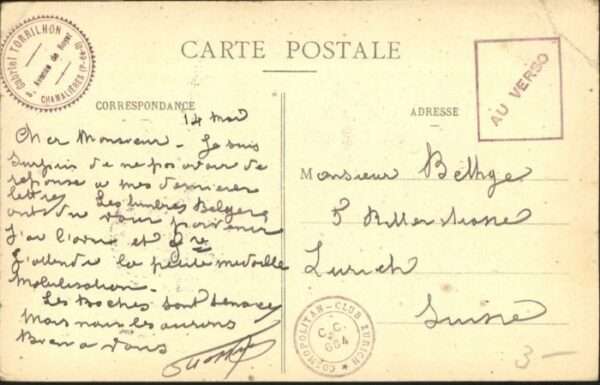 CARTE POSTALE
CORRESPONDANCE
ADRESSE
Gabriel TORRILHON
Avenue de Royat
CHAMALIÈRES (P-de-D)
AU VERSO
14 Mai
Cher Monsieur - Je suis
surpris de ne pas avoir de
réponse a mes dernieres
lettres. Les timbres Belges
ont du vous parvenir
J'ai l'ours et
J'attends la petite medaille
Mobilisation.
Les Boches sont tenaces
Mais nous les aurons
Bien a vous
Monsieur Bethge
5 Ritterstrasse
Zurich
Suisse
COSMOPOLITAN-CLUB ZURICH
C.C.
664
3-